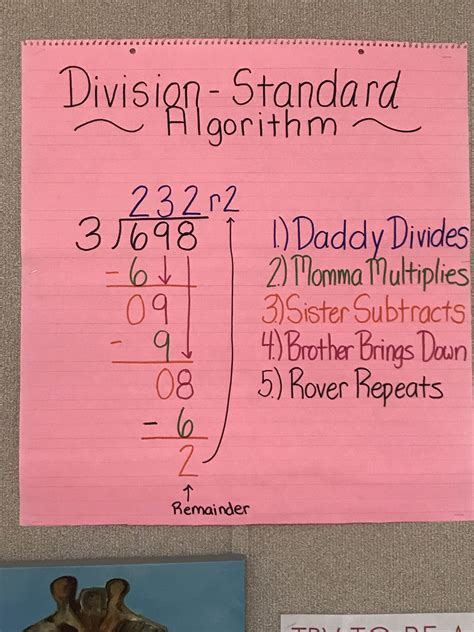 Division - Standard
~ Algorithm ~
232 r2
3)698
1.) Daddy Divides
2.) Momma Multiplies
3.) Sister Subtracts
4.) Brother Brings Down
5.) Rover Repeats
-6
09
- 9
08
- 6
2
↑
Remainder